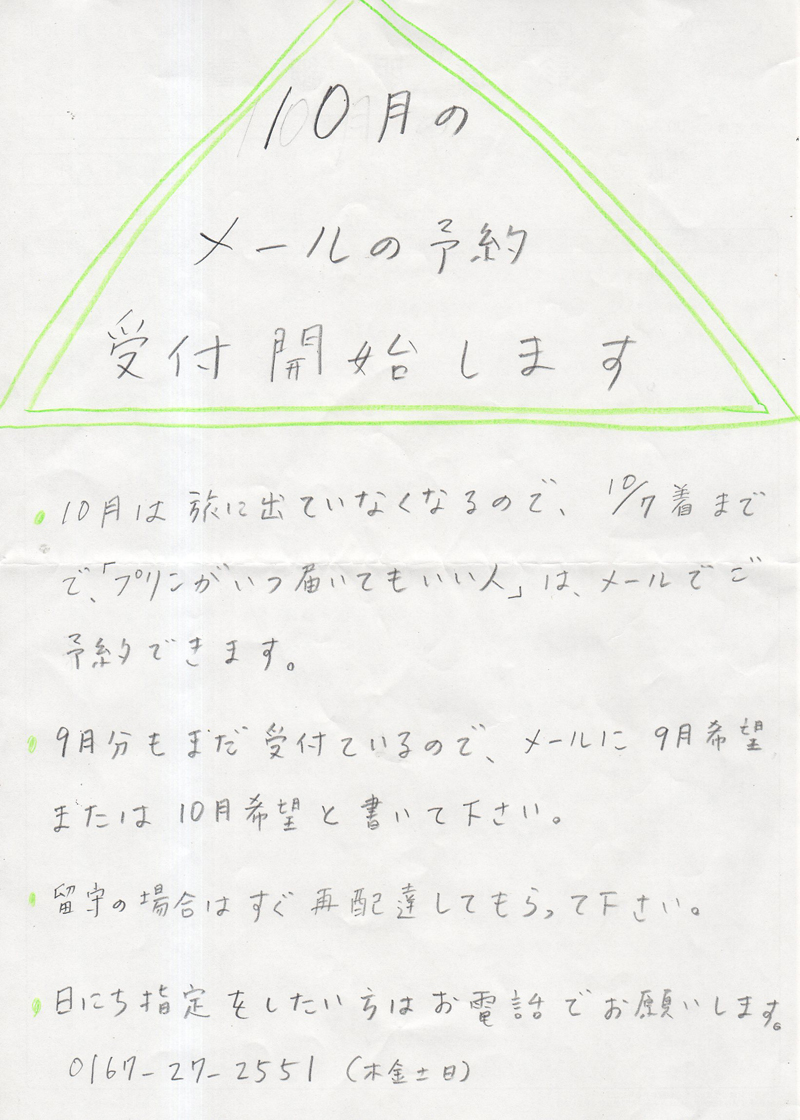 10月の
メールの予約
受付開始します
・10月は旅に出ていなくなるので、10/7着まで
で、「プリンがいつ届いてもいい人」は、メールでご
予約できます。
・9月分もまだ受付ているので、メールに9月希望
または10月希望と書いて下さい。
・留守の場合はすぐ再配達してもらって下さい。
・日にち指定をしたい方はお電話でお願いします。
0167-27-2551(木金土日)